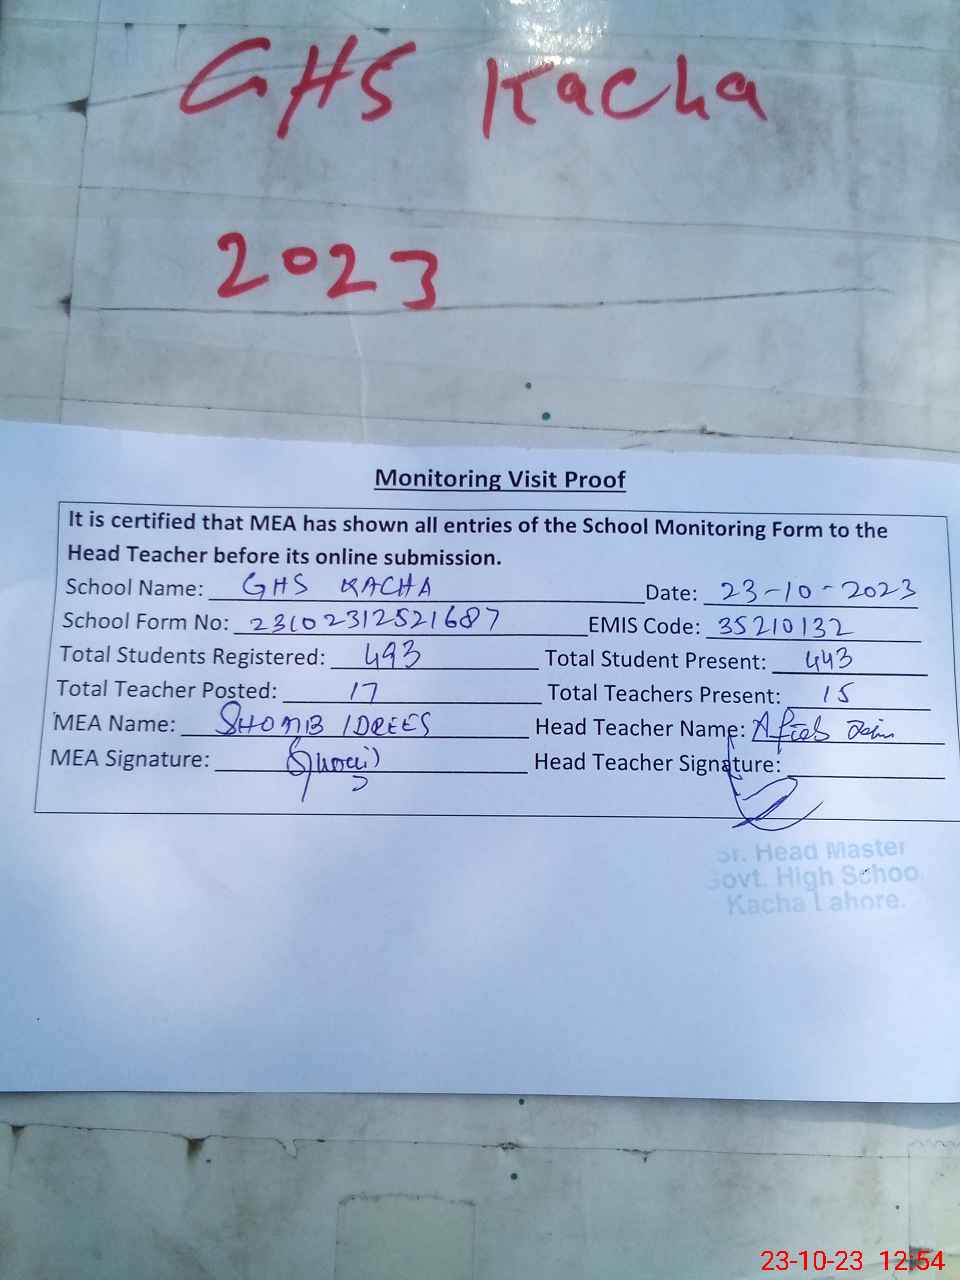 GHS Kacha
2023
Monitoring Visit Proof
It is certified that MEA has shown all entries of the School Monitoring Form to the
Head Teacher before its online submission.
School Name: GHS KACHA Date: 23-10-2023
School Form No: 23102312521687 EMIS Code: 35210132
Total Students Registered: 493 Total Student Present: 443
Total Teacher Posted: 17 Total Teachers Present: 15
MEA Name: SHOAIB IDREES Head Teacher Name:
MEA Signature: Head Teacher Signature:
Sr. Head Master
Govt. High Schoo
Kacha Lahore.
23-10-23 12:54